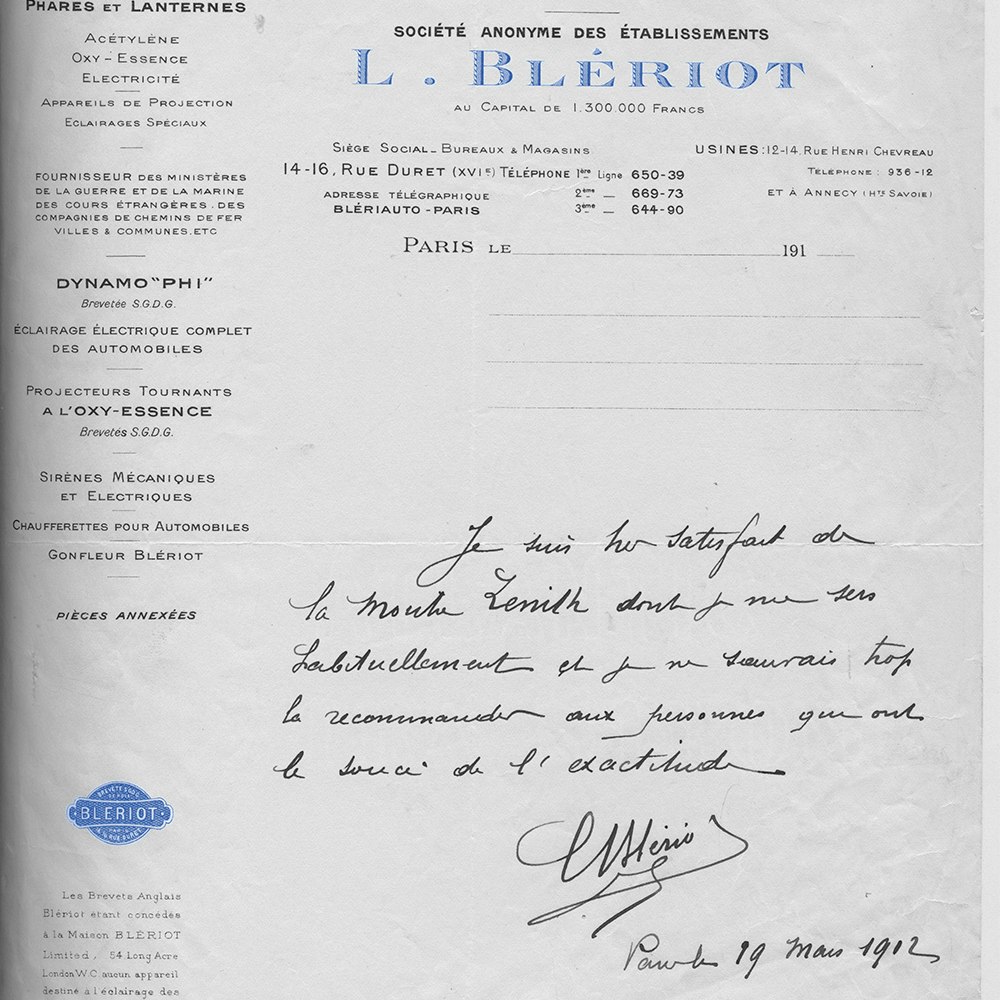 PHARES ET LANTERNES
ACÉTYLÈNE
OXY-ESSENCE
ELECTRICITÉ
APPAREILS DE PROJECTION
ECLAIRAGES SPÉCIAUX
FOURNISSEUR DES MINISTÈRES
DE LA GUERRE ET DE LA MARINE
DES COURS ÉTRANGÈRES. DES
COMPAGNIES DE CHEMINS DE FER
VILLES & COMMUNES.ETC
DYNAMO "PHI"
Brevetée S.G.D.G.
ÉCLAIRAGE ÉLECTRIQUE COMPLET
DES AUTOMOBILES
PROJECTEURS TOURNANTS
A L'OXY-ESSENCE
Brevetés S.G.D.G.
SIRÈNES MÉCANIQUES
ET ELECTRIQUES
CHAUFFERETTES POUR AUTOMOBILES
GONFLEUR BLÉRIOT
PIÈCES ANNEXÉES
BLÉRIOT
Les Brevets Anglais
Blériot étant concédés
à la Maison BLÉRIOT
Limited, 54 Long Acre
London W.C. aucun appareil
destiné à l'éclairage des
SOCIÉTÉ ANONYME DES ÉTABLISSEMENTS
L. BLÉRIOT
AU CAPITAL DE 1.300.000 FRANCS
SIÈGE SOCIAL_BUREAUX & MAGASINS
14-16, RUE DURET (XVIE) TÉLÉPHONE 1ère Ligne 650-39
ADRESSE TÉLÉGRAPHIQUE 2ème — 669-73
BLÉRIAUTO-PARIS 3ème — 644-90
USINES: 12-14, RUE HENRI CHEVREAU
TÉLÉPHONE: 936-12
ET À ANNECY (HTE SAVOIE)
PARIS LE 191
Je suis très satisfait de
la montre Zenith dont je me sers
habituellement et je ne saurais trop
la recommander aux personnes qui ont
le souci de l'exactitude
L Blériot
Paris le 19 Mars 1912